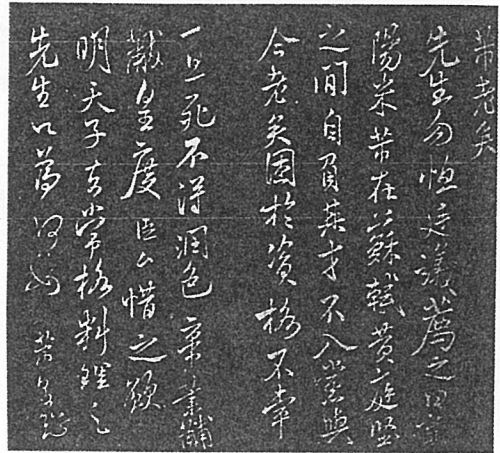 芾老矣
先生勿恤廷議薦之曰襄
陽米芾在蘇軾黃庭堅
之間自負其才不入黨與
今老矣困於資格不幸
一旦死不得潤色帝業黼
黻皇度臣僚惜之願
明天子去常格料理之
先生以為何如 芾皇恐